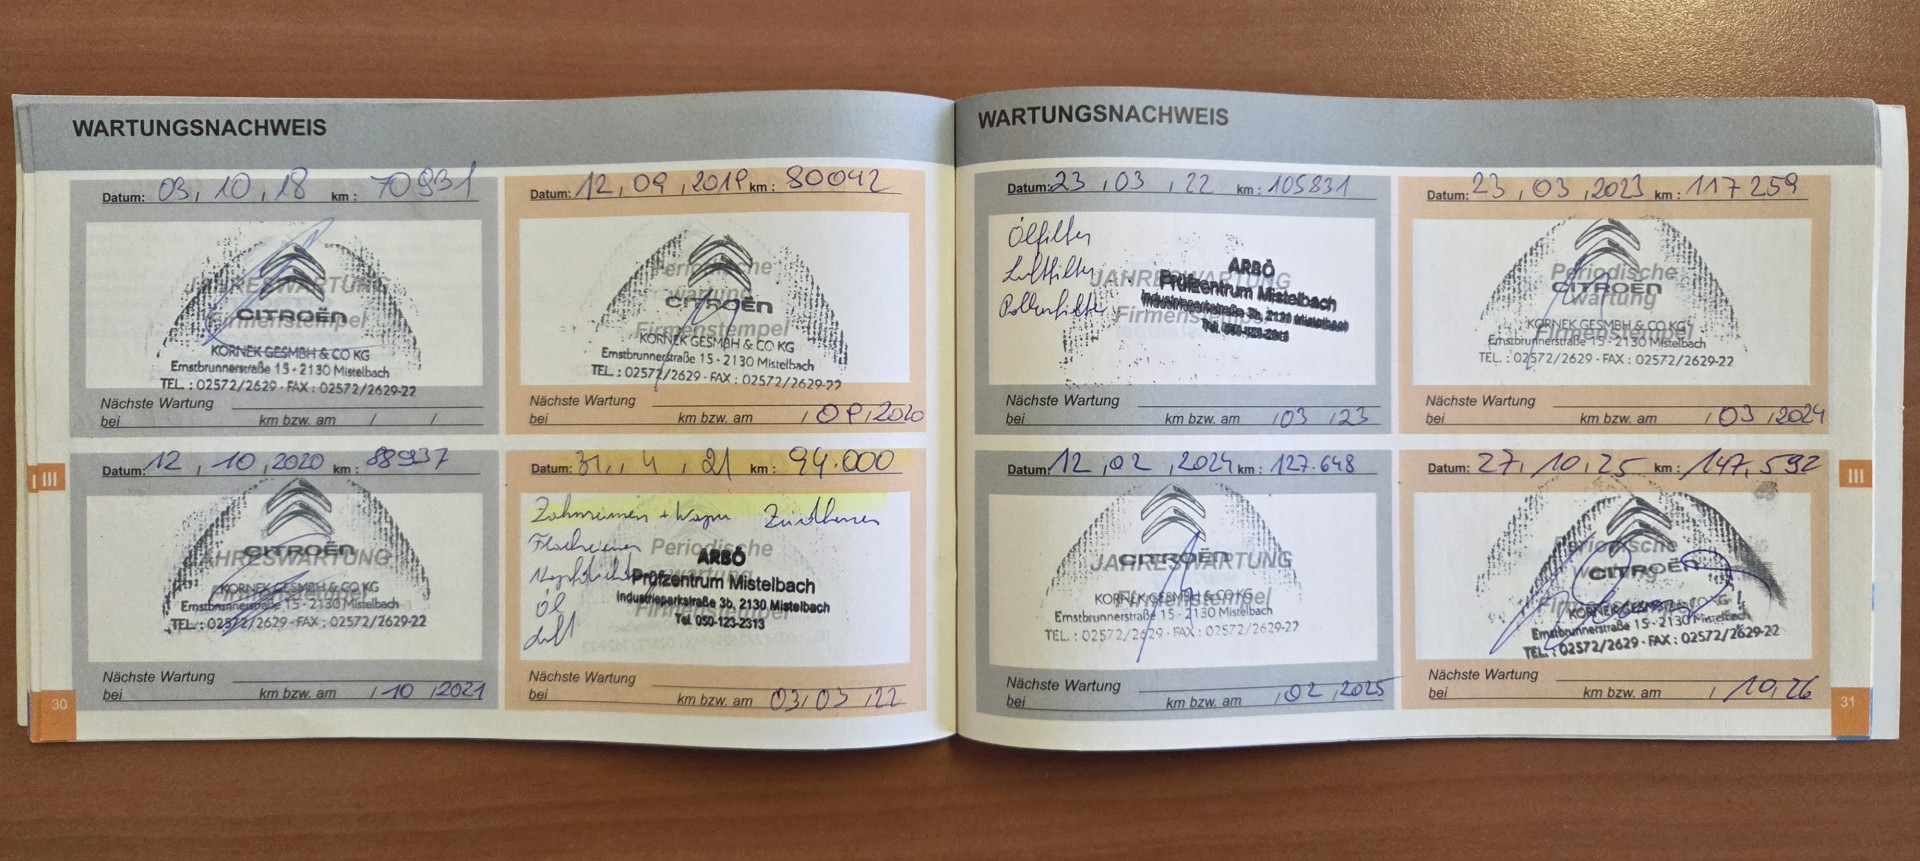 WARTUNGSNACHWEIS
Datum: 03, 10, 18 km: 70931
JAHRESWARTUNG
CITROËN
Firmenstempel
KORNEK GESMBH & CO KG
Ernstbrunnerstraße 15 - 2130 Mistelbach
TEL. : 02572/2629 - FAX : 02572/2629-22
Nächste Wartung
bei km bzw. am / /
Datum: 12, 09, 2019 km: 80042
Periodische
wartung
CITROËN
Firmenstempel
KORNEK GESMBH & CO KG
Ernstbrunnerstraße 15 - 2130 Mistelbach
TEL. : 02572/2629 - FAX : 02572/2629-22
Nächste Wartung
bei km bzw. am , 09, 2020
Datum: 12, 10, 2020 km: 88937
CITROËN
JAHRESWARTUNG
KORNEK GESMBH & CO KG
Firmenstempel
Ernstbrunnerstraße 15 - 2130 Mistelbach
TEL. : 02572/2629 - FAX : 02572/2629-22
Nächste Wartung
bei km bzw. am , 10, 2021
Datum: 31, 4, 21 km: 94.000
Zahnriemen +
Flachriemen
Öl
Luft
Periodische
wartung
Firmenstempel
ARBÖ
Prüfzentrum Mistelbach
Industrieparkstraße 3b, 2130 Mistelbach
Tel. 050-123-2313
Nächste Wartung
bei km bzw. am 03, 03, 22
30
III
WARTUNGSNACHWEIS
Datum: 23, 03, 22 km: 105831
Ölfilter
Luftfilter
Pollenfilter
JAHRESWARTUNG
Firmenstempel
ARBÖ
Prüfzentrum Mistelbach
Industrieparkstraße 3b, 2130 Mistelbach
Tel. 050-123-2313
Nächste Wartung
bei km bzw. am , 03, 23
Datum: 23, 03, 2023 km: 117259
Periodische
CITROËN
wartung
KORNEK GESMBH & CO KG
Firmenstempel
Ernstbrunnerstraße 15 - 2130 Mistelbach
TEL. : 02572/2629 - FAX : 02572/2629-22
Nächste Wartung
bei km bzw. am , 03, 2024
Datum: 12, 02, 2024 km: 127.648
CITROËN
JAHRESWARTUNG
KORNEK GESMBH & CO KG
Firmenstempel
Ernstbrunnerstraße 15 - 2130 Mistelbach
TEL. : 02572/2629 - FAX : 02572/2629-22
Nächste Wartung
bei km bzw. am , 02, 2025
Datum: 27, 10, 25 km: 147.592
Periodische
CITROËN
wartung
KORNEK GESMBH & CO KG
Firmenstempel
Ernstbrunnerstraße 15 - 2130 Mistelbach
TEL. : 02572/2629 - FAX : 02572/2629-22
Nächste Wartung
bei km bzw. am , 10, 26
31
III